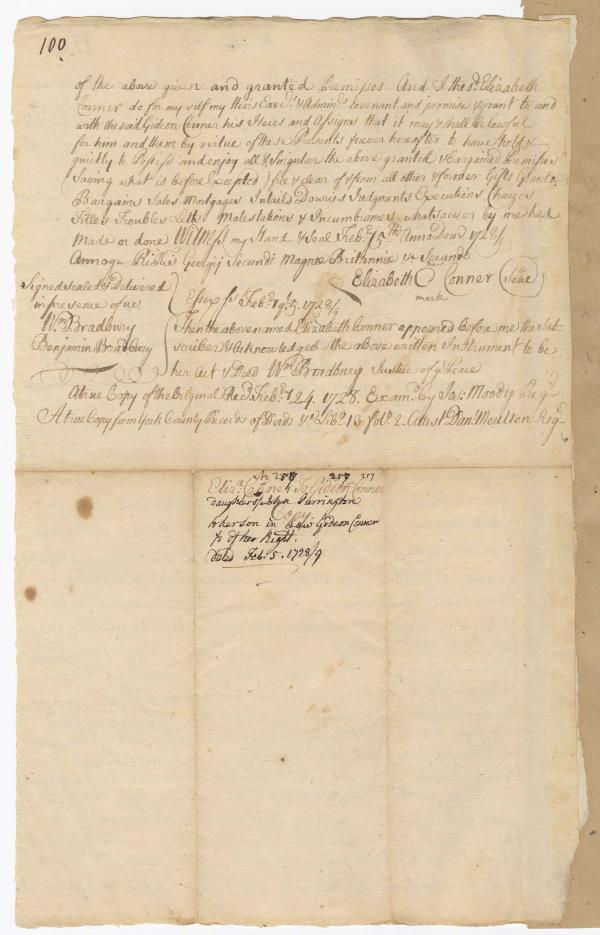 100
of the above given and granted Premisses And I the sd. Elizabeth
Conner do for my self my Heirs Execrs. & Adminrs Covenant and promise & grant to and
with the said Gideon Conner his Heirs and Assigns that it may & shall be lawful
for him and them by virtue of these Presents forever hereafter to have hold &
quietly to Possess and enjoy all & singular the above granted & Bargained Premisses
Saving what is before Excepted) free & clear of & from all other & former Gifts Grants
Bargains Sales Mortgages Intails Dowries Judgments Executions Charges
Titles Troubles Letts Molestations & Incumbrances whatsoever by me had
made or done Witness my Hand & Seal Febry. 5th Anno Dom 1728/9
Annoq Regis Georgij Secundi Magnae Brittanniae &c Secundo
Elizabeth C Conner Seal
mark
Signed Sealed & Delivered
in presence of us
Wm Bradbury
Benjamin Bradbury
Essex ss Febry. 5. 1728/9
Then the above named Elizabeth Conner appeared before me the Sub-
scriber & Acknowledged the above written Instrument to be
her Act & Deed Wm Bradbury Justice of ye Peace
A true Copy of the Original Recd. Febry. 24. 1728. Examd. by Jos: Moody Regr.
A true Copy from York County Records of Deeds &c. Libo. 13 folo. 2. Attest Danl. Moulton Regr.
No 257 257 257
Eliza. Conner To Gideon Conner
daughter of John Purrington
Copy
to her son in Law Gideon Conner
of her Right.
Dated Feb. 5. 1728/9